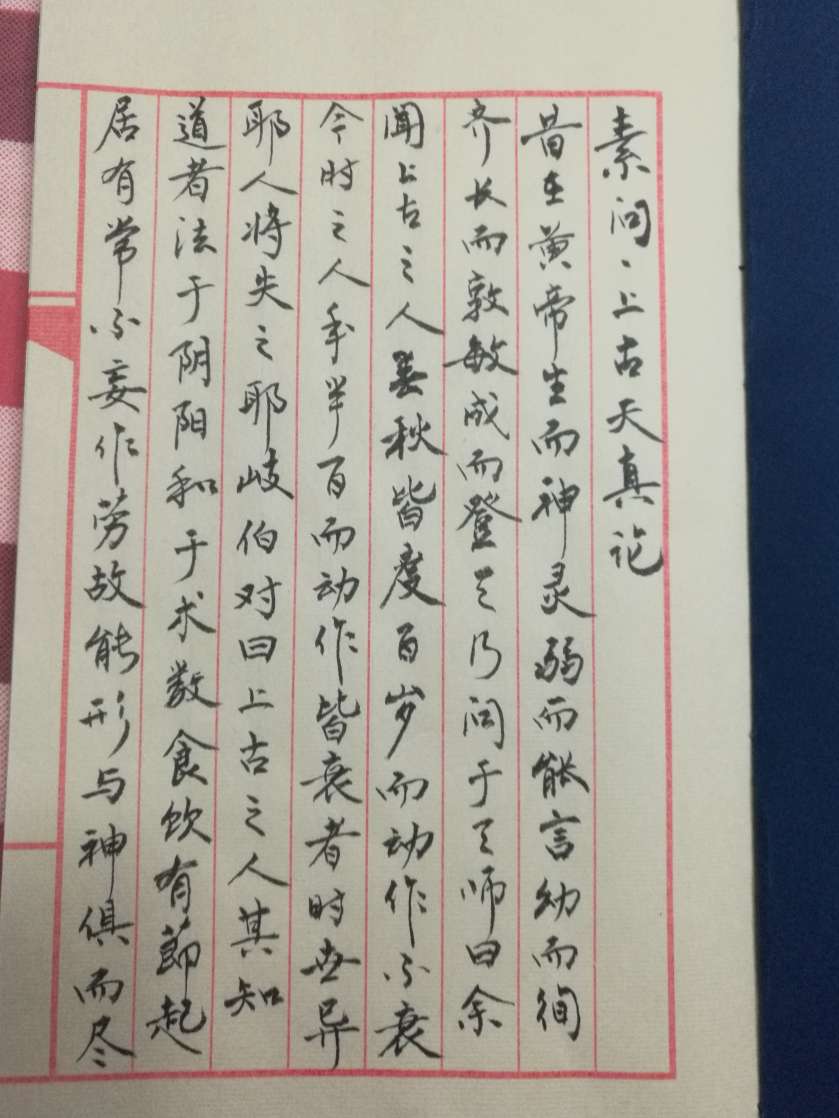 素问、上古天真论
昔在黄帝生而神灵弱而能言幼而徇
齐长而敦敏成而登天乃问于天师曰余
闻上古之人春秋皆度百岁而动作不衰
今时之人年半百而动作皆衰者时世异
耶人将失之耶岐伯对曰上古之人其知
道者法于阴阳和于术数食饮有节起
居有常不妄作劳故能形与神俱而尽